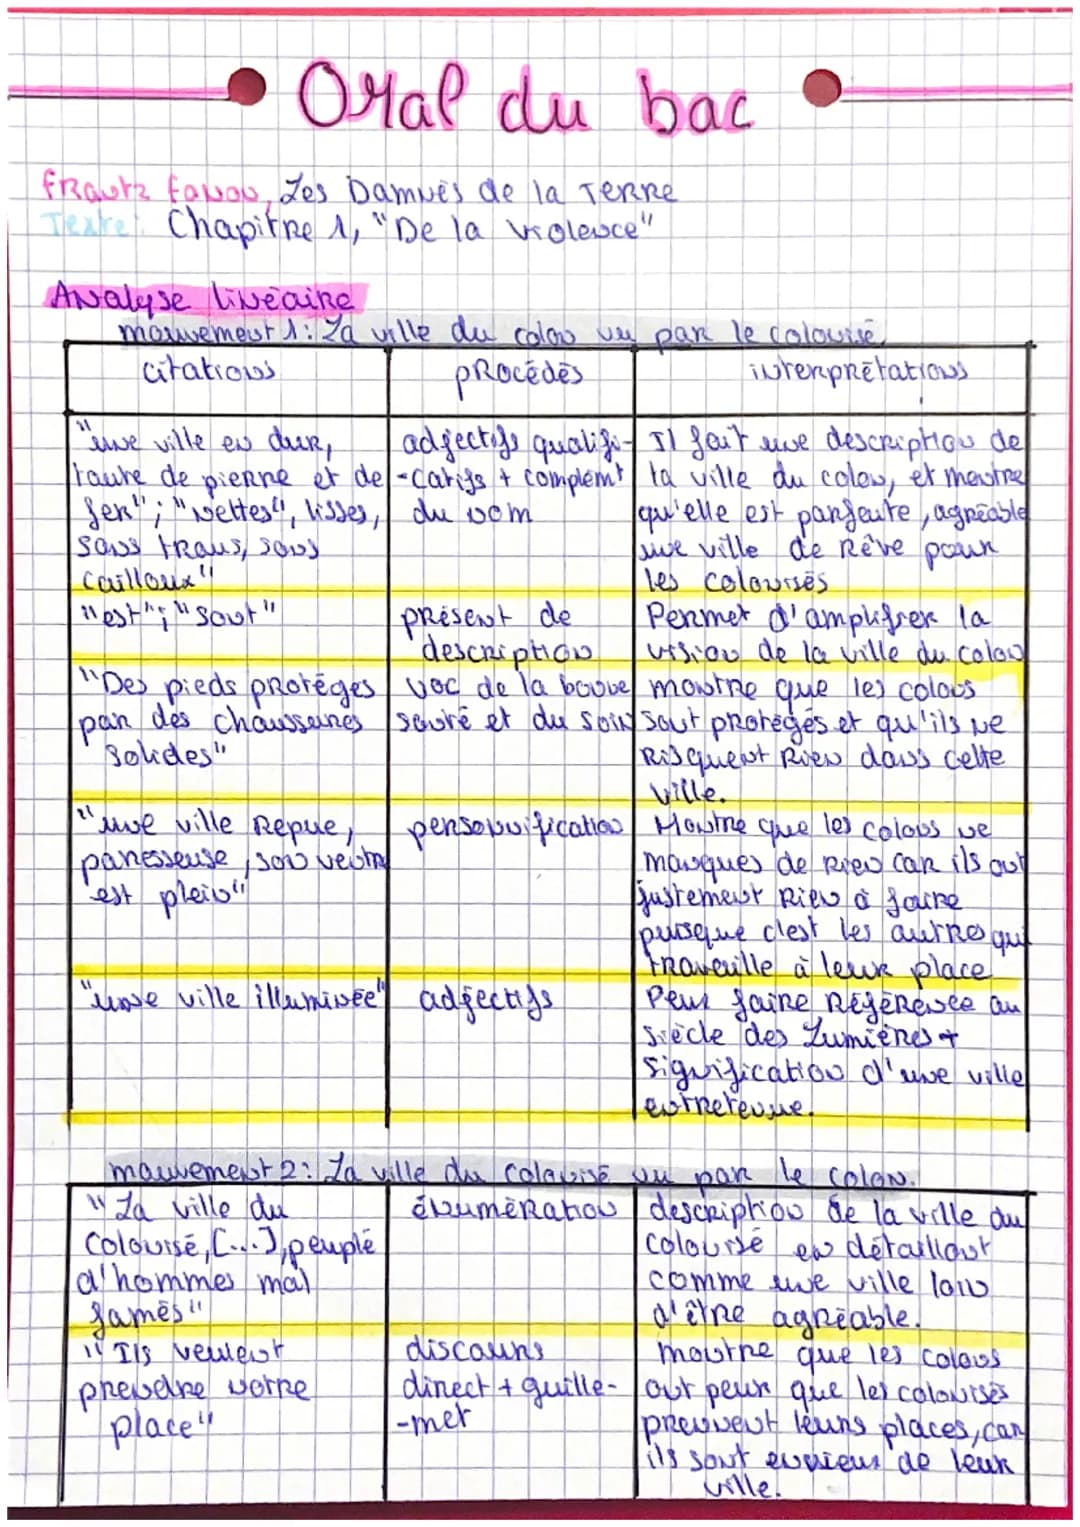 Oral du bac
Frantz Fanon, Les Damnés de la Terre
Texte: Chapitre 1, "De la violence"
Analyse linéaire
mouvement 1: La ville du colon vu par le colonisé.
citations
procédés
interprétations
"une ville en dur,
toute de pierre et de
fer"; "nettes", lisses,
sans trous, sans
cailloux"
adjectifs qualifi-
-catifs + complémt
du nom
Il fait une description de
la ville du colon, et montre
qu'elle est parfaite, agréable
une ville de rêve pour
les colonisés
"est"; "sont"
présent de
description
Permet d'amplifier la
vision de la ville du colon
"Des pieds protégés
par des chaussures
solides"
voc de la bonne
santé et du soin
montre que les colons
sont protégés et qu'ils ne
risquent rien dans cette
ville.
"une ville repue,
paresseuse, son ventre
est plein"
personnification
Montre que les colons ne
manques de rien car ils ont
justement rien à faire
puisque c'est les autres qui
travaille à leur place
"une ville illuminée"
adjectifs
Peux faire référence au
siècle des Lumières +
signification d'une ville
entretenue.
mouvement 2: La ville du colonisé vu par le colon.
"La ville du
colonisé, [...], peuplé
d'hommes mal
famés"
énumération
description de la ville du
colonisé en détaillant
comme une ville loin
d'être agréable.
"Ils veulent
prendre notre
place"
discours
direct + guille-
-met
montre que les colons
ont peur que les colonisés
prennent leurs places, car
ils sont envieux de leur
ville.